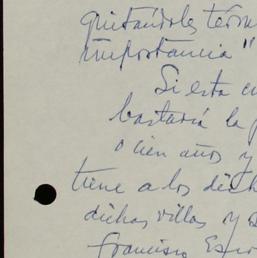 quitándoles térm
importancia"
Si esta
bastaría la
o cien años y
tiene a los dich
dichas villas y
Francisco